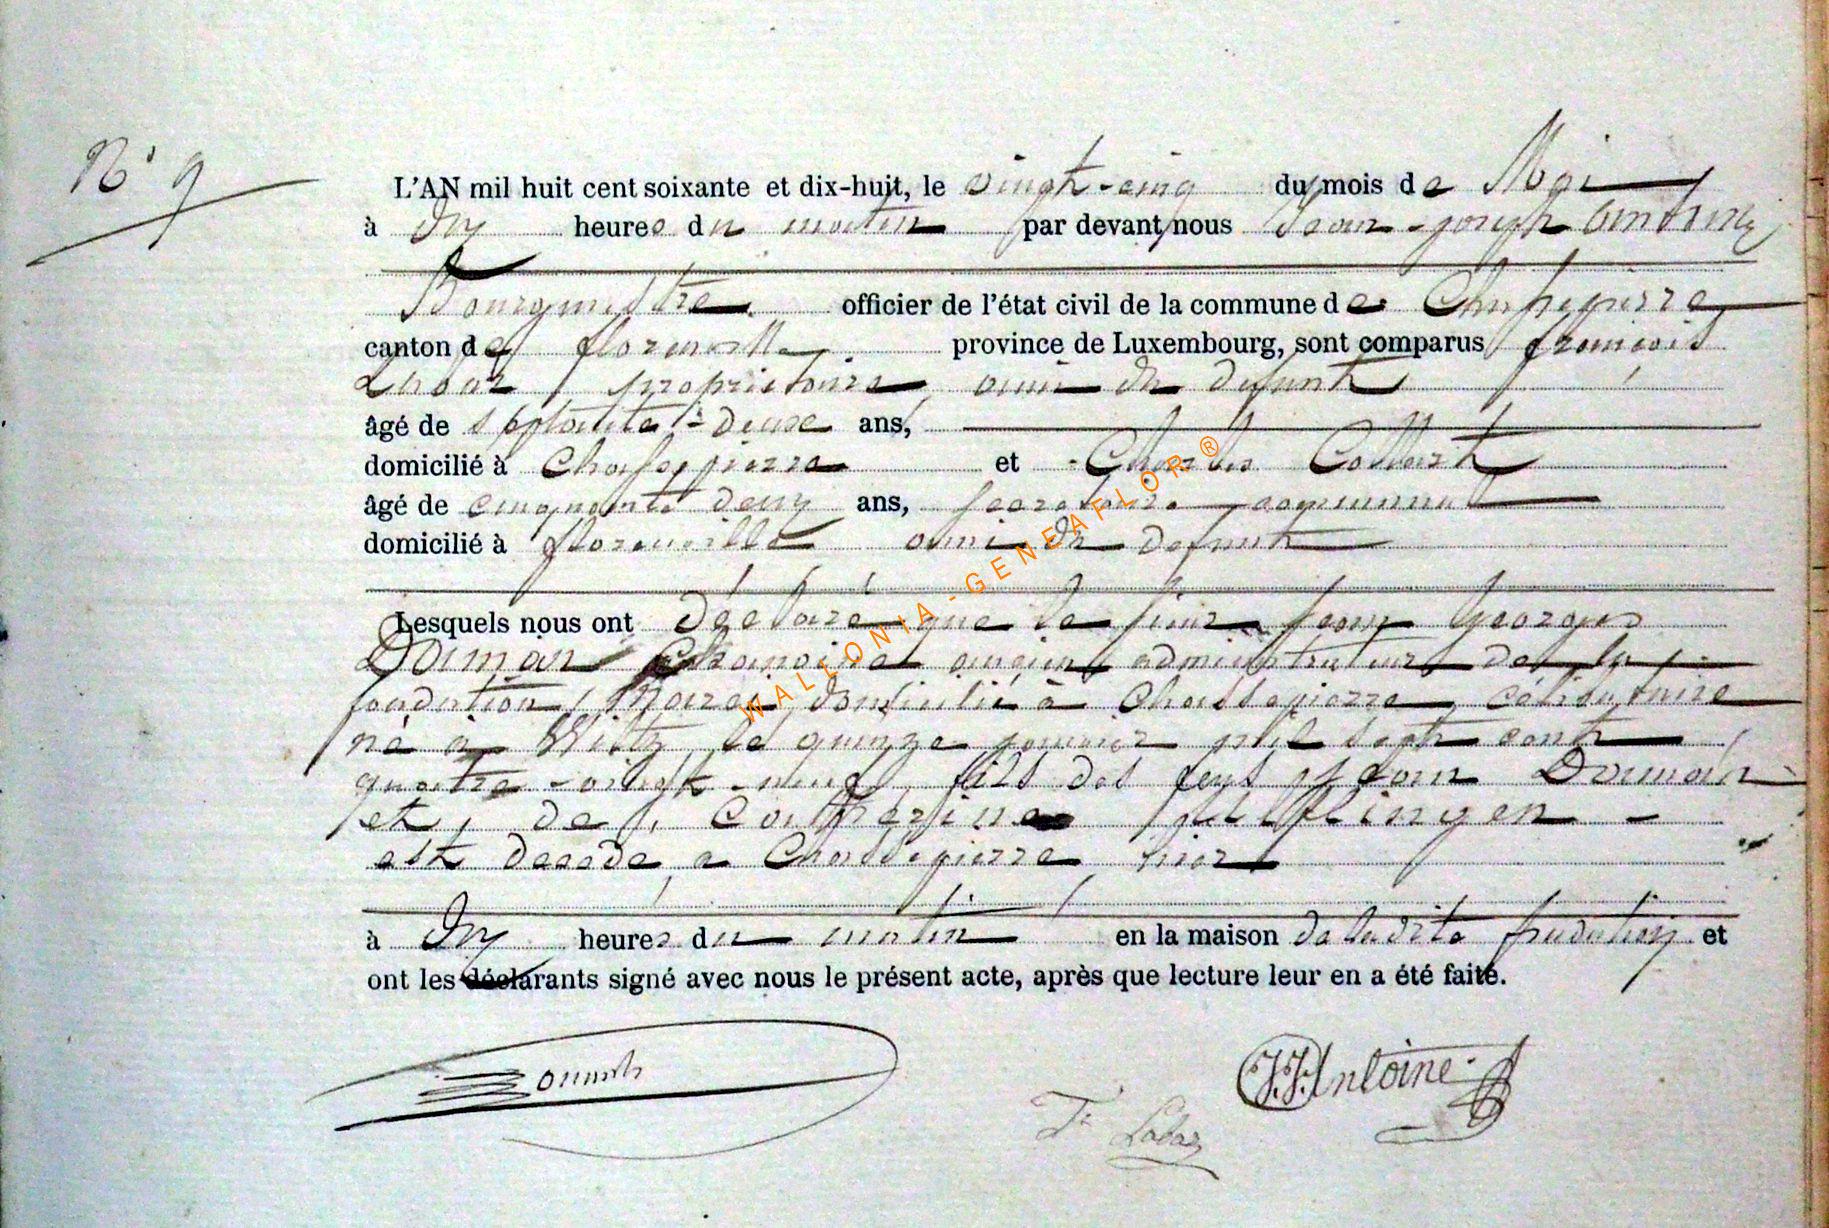 N° 9
L'AN mil huit cent soixante et dix-huit, le vingt-cinq du mois de Mai
à dix heures du matin par devant nous Jean-joseph antoine
Bourgmestre officier de l'état civil de la commune de Chassepierre
canton de florenville province de Luxembourg, sont comparus françois
propriétaire ami du défunt
âgé de septante-deux ans,
domicilié à Chassepierre et Charles Collart
âgé de cinquante deux ans, secretaire communal
domicilié à florenville ami du defunt
Lesquels nous ont déclaré que le sieur jean Georges
chanoine ancien administrateur de la
fondation domicilié à Chassepierre, célibataire
né à Wiltz le quinze janvier mil sept cent
quatre-vingt-neuf, fils des feus jean
et de Catherine
est decédé a Chassepierre hier
à dix heures du matin en la maison de ladite fondation et
ont les déclarants signé avec nous le présent acte, après que lecture leur en a été faite.
J.J. Antoine
WALLONIA - GENEAFLOR ®